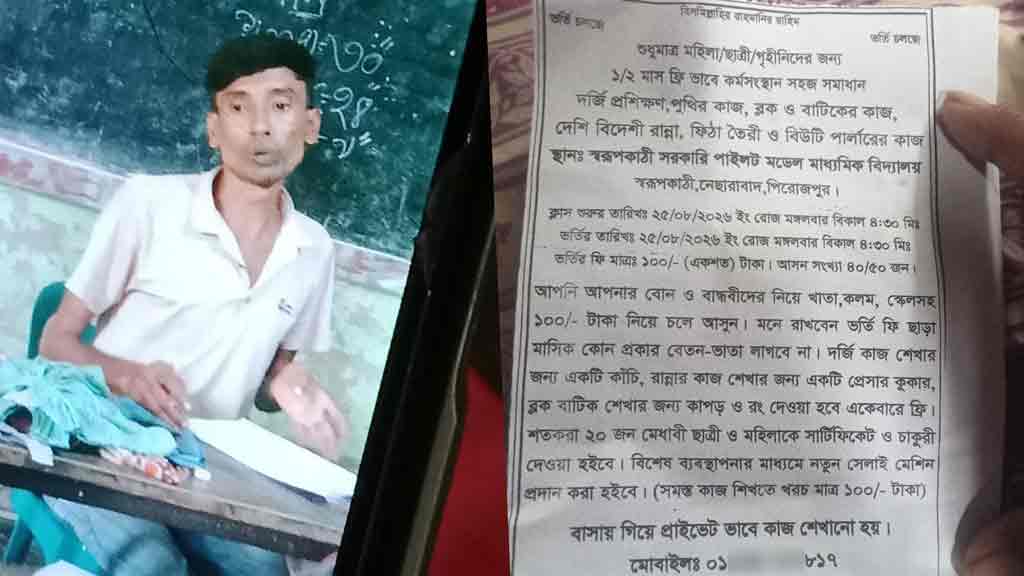 ২৪
বিসমিল্লাহির রাহমানির রাহিম
ভর্তি চলছে!
ভর্তি চলছে!
শুধুমাত্র মহিলা/ছাত্রী/গৃহীনিদের জন্য
১/২ মাস ফ্রি ভাবে কর্মসংস্থান সহজ সমাধান
দর্জি প্রশিক্ষণ,পুথির কাজ, ব্লক ও বাটিকের কাজ,
দেশি বিদেশী রান্না, ফিঠা তৈরী ও বিউটি পার্লারের কাজ
স্থানঃ স্বরূপকাঠী সরকারি পাইলট মডেল মাধ্যমিক বিদ্যালয়
স্বরূপকাঠী,নেছারাবাদ,পিরোজপুর।
ক্লাস শুরুর তারিখঃ ২৫/০৮/২০২৬ ইং রোজ মঙ্গলবার বিকাল ৪:৩০ মিঃ
ভর্তির তারিখঃ ২৫/০৮/২০২৬ ইং রোজ মঙ্গলবার বিকাল ৪:৩০ মিঃ
ভর্তির ফি মাত্রঃ ১০০/- (একশত) টাকা। আসন সংখ্যা ৪০/৫০ জন।
আপনি আপনার বোন ও বান্ধবীদের নিয়ে খাতা,কলম, স্কেলসহ
১০০/- টাকা নিয়ে চলে আসুন। মনে রাখবেন ভর্তি ফি ছাড়া
মাসিক কোন প্রকার বেতন-ভাতা লাগবে না। দর্জি কাজ শেখার
জন্য একটি কাঁচি, রান্নার কাজ শেখার জন্য একটি প্রেসার কুকার,
ব্লক বাটিক শেখার জন্য কাপড় ও রং দেওয়া হবে একেবারে ফ্রি।
শতকরা ২০ জন মেধাবী ছাত্রী ও মহিলাকে সার্টিফিকেট ও চাকুরী
দেওয়া হইবে। বিশেষ ব্যবস্থাপনার মাধ্যমে নতুন সেলাই মেশিন
প্রদান করা হইবে। (সমস্ত কাজ শিখতে খরচ মাত্র ১০০/- টাকা)
বাসায় গিয়ে প্রাইভেট ভাবে কাজ শেখানো হয়।
মোবাইলঃ ০১ ৮১৭